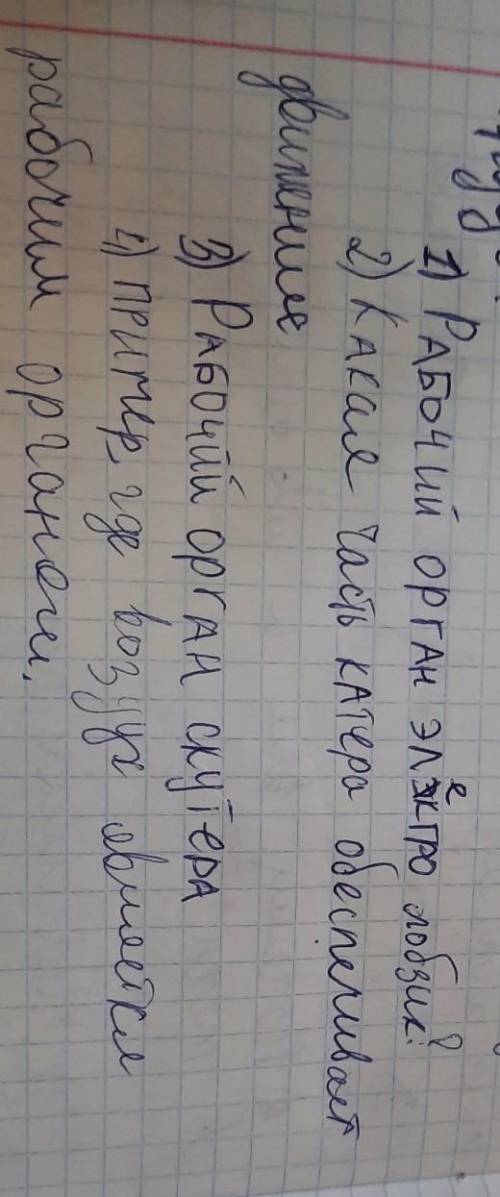 1) Рабочий орган электро лобзик?
2) Какая часть катера обеспечивает
движение
3) Рабочий орган скутера
4) Пример, где воздух является
рабочим органом.